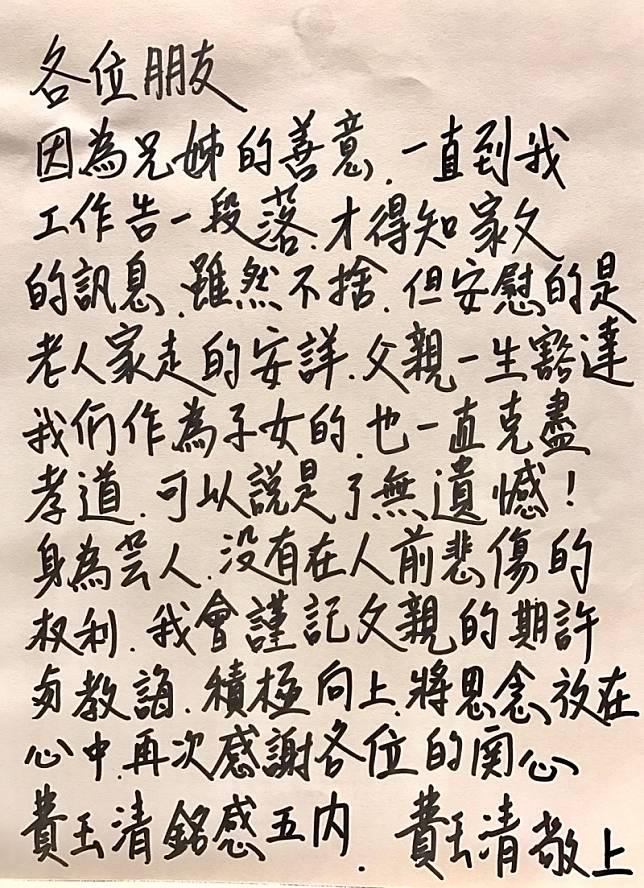 各位朋友
因為兄姊的善意.一直到我
工作告一段落.才得知家父
的訊息.雖然不捨.但安慰的是
老人家走的安詳.父親一生豁達
我们作為子女的.也一直克盡
孝道.可以說是了無遺憾!
身為芸人.没有在人前悲傷的
权利.我會謹記父親的期許
与教誨.積極向上.將思念放在
心中.再次感謝各位的関心
費玉清銘感五内. 費玉清敬上